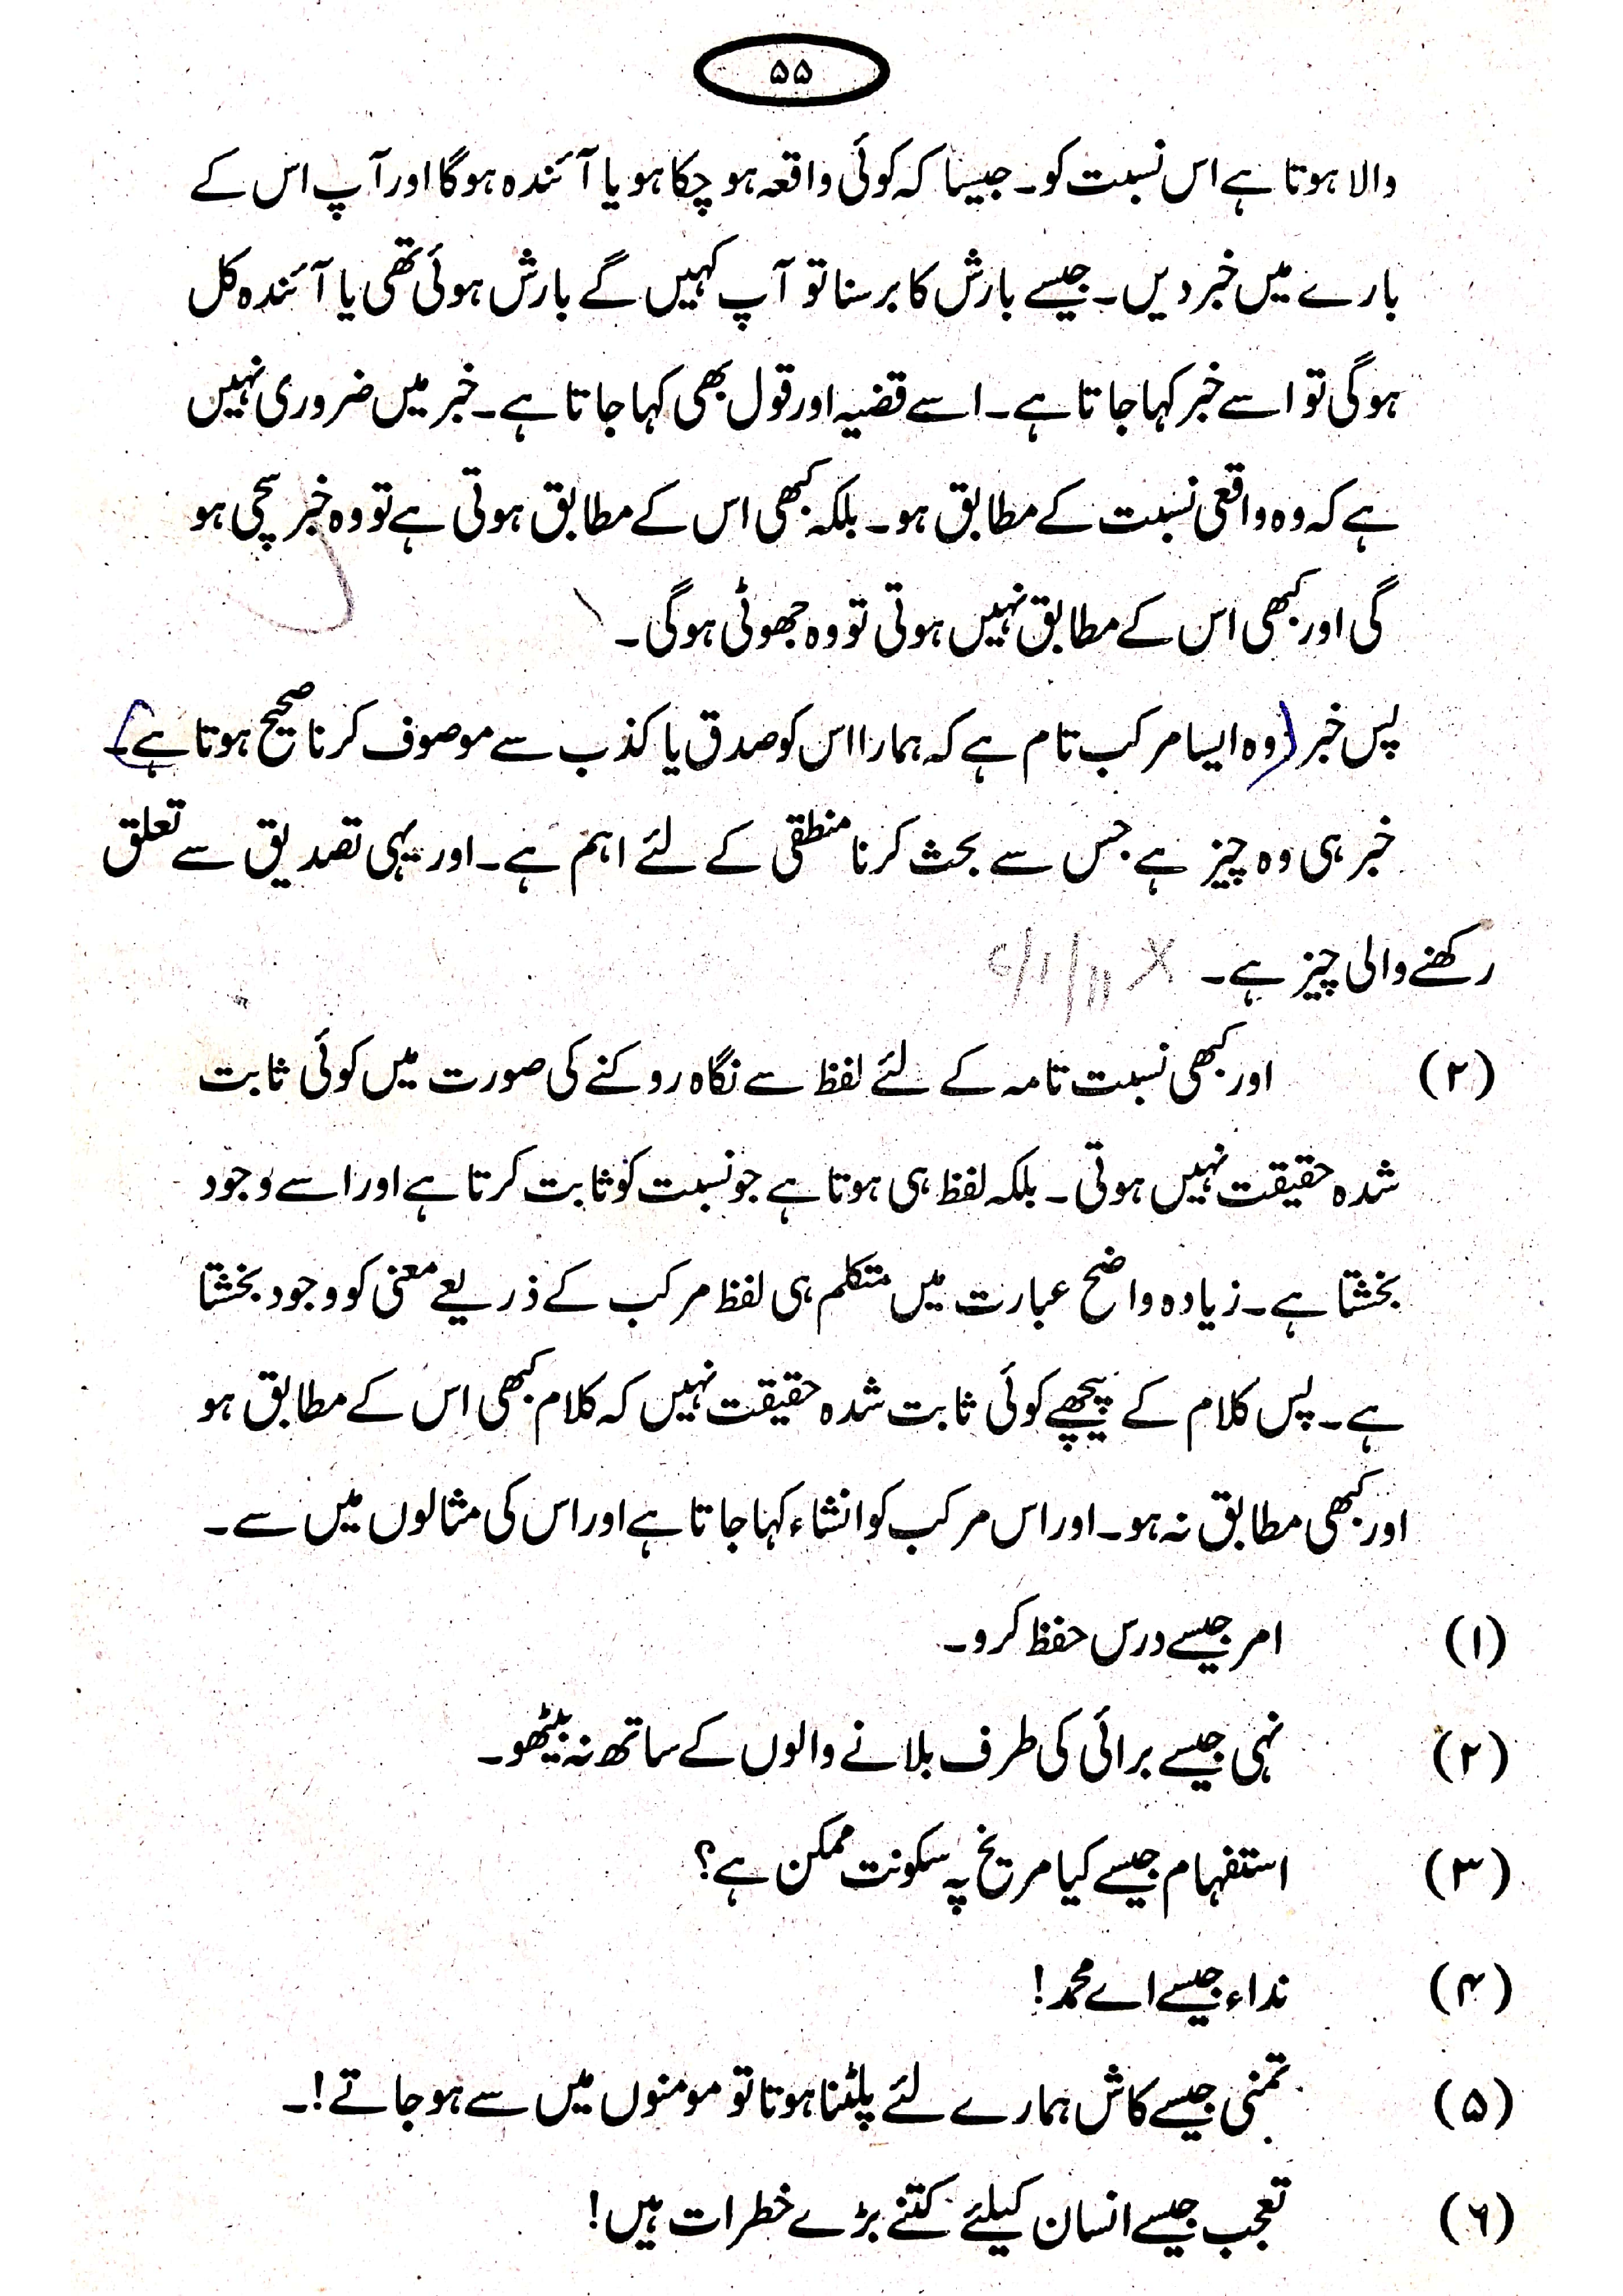 ۵۵
والا ہوتا ہے اس نسبت کو۔ جیسا کہ کوئی واقعہ ہو چکا ہو یا آئندہ ہوگا اور آپ اس کے
بارے میں خبر دیں۔ جیسے بارش کا برسنا تو آپ کہیں گے بارش ہوئی تھی یا آئندہ کل
ہوگی تو اسے خبر کہا جاتا ہے۔ اسے قضیہ اور قول بھی کہا جاتا ہے۔ خبر میں ضروری نہیں
ہے کہ وہ واقعی نسبت کے مطابق ہو۔ بلکہ کبھی اس کے مطابق ہوتی ہے تو وہ خبر سچی ہو
گی اور کبھی اس کے مطابق نہیں ہوتی تو وہ جھوٹی ہوگی۔
پس خبر (وہ ایسا مرکب تام ہے کہ ہمارا اس کو صدق یا کذب سے موصوف کرنا صحیح ہوتا ہے)۔
خبر ہی وہ چیز ہے جس سے بحث کرنا منطقی کے لئے اہم ہے۔ اور یہی تصدیق سے تعلق
رکھنے والی چیز ہے۔
(۲) اور کبھی نسبت تامہ کے لئے لفظ سے نگاہ روکنے کی صورت میں کوئی ثابت
شدہ حقیقت نہیں ہوتی۔ بلکہ لفظ ہی ہوتا ہے جو نسبت کو ثابت کرتا ہے اور اسے وجود
بخشتا ہے۔ زیادہ واضح عبارت میں متکلم ہی لفظ مرکب کے ذریعے معنی کو وجود بخشتا
ہے۔ پس کلام کے پیچھے کوئی ثابت شدہ حقیقت نہیں کہ کلام کبھی اس کے مطابق ہو
اور کبھی مطابق نہ ہو۔ اور اس مرکب کو انشاء کہا جاتا ہے اور اس کی مثالوں میں سے۔
(۱) امر جیسے درس حفظ کرو۔
(۲) نہی جیسے برائی کی طرف بلانے والوں کے ساتھ نہ بیٹھو۔
(۳) استفہام جیسے کیا مریخ پہ سکونت ممکن ہے؟
(۴) نداء جیسے اے محمد!
(۵) تمنی جیسے کاش ہمارے لئے پلٹنا ہوتا تو مومنوں میں سے ہو جاتے!۔
(۶) تعجب جیسے انسان کیلئے کتنے بڑے خطرات ہیں!